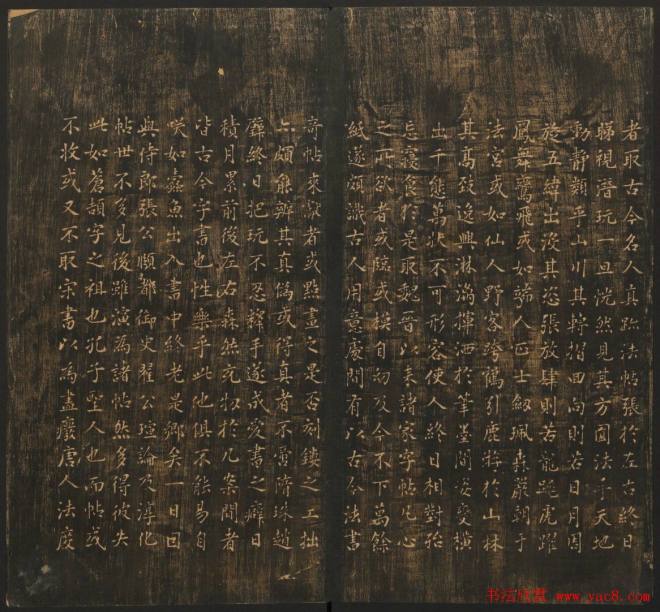 者取古今名人真跡法帖張於左右終日
睇視潛玩一旦恍然見其方圓法乎天地
動靜類乎山川其轉摺回尚則若日月周
於五緯出沒其恣張放肆則若龍跳虎躍
鳳舞鸞飛或如端人正士劔珮森嚴朝于
法宮或如仙人野客跨鶴引鹿遊於山林
其高致逸興淋漓揮洒於筆墨間姿變橫
出千態萬狀不可形容使人終日相對殆
忘寢食於是取魏晉以來諸家字帖凡心
之所欲者或臨或模自幼及今不下萬餘
紙遂頗識古人用意處間有以古公法書
奇帖來獻者或點畫之是否刻鏤之工拙
亦頗能辨其真偽或得真者不啻隋珠趙
璧終日把玩不忍釋手遂成愛書之癖日
積月累前後左右森然充牣於几案間者
皆古今字書也性樂乎此他俱不能易自
咲如蠹魚出入書中終老是鄉矣一日因
與侍郎張公順齋御史翟公瑄論及淳化
帖世不多見後雖演為諸帖然多得彼失
此如蒼頡字之祖也孔子聖人也而帖或
不收或又不取宋書以為盡廢唐人法度
书法欣赏 www.yac8.com